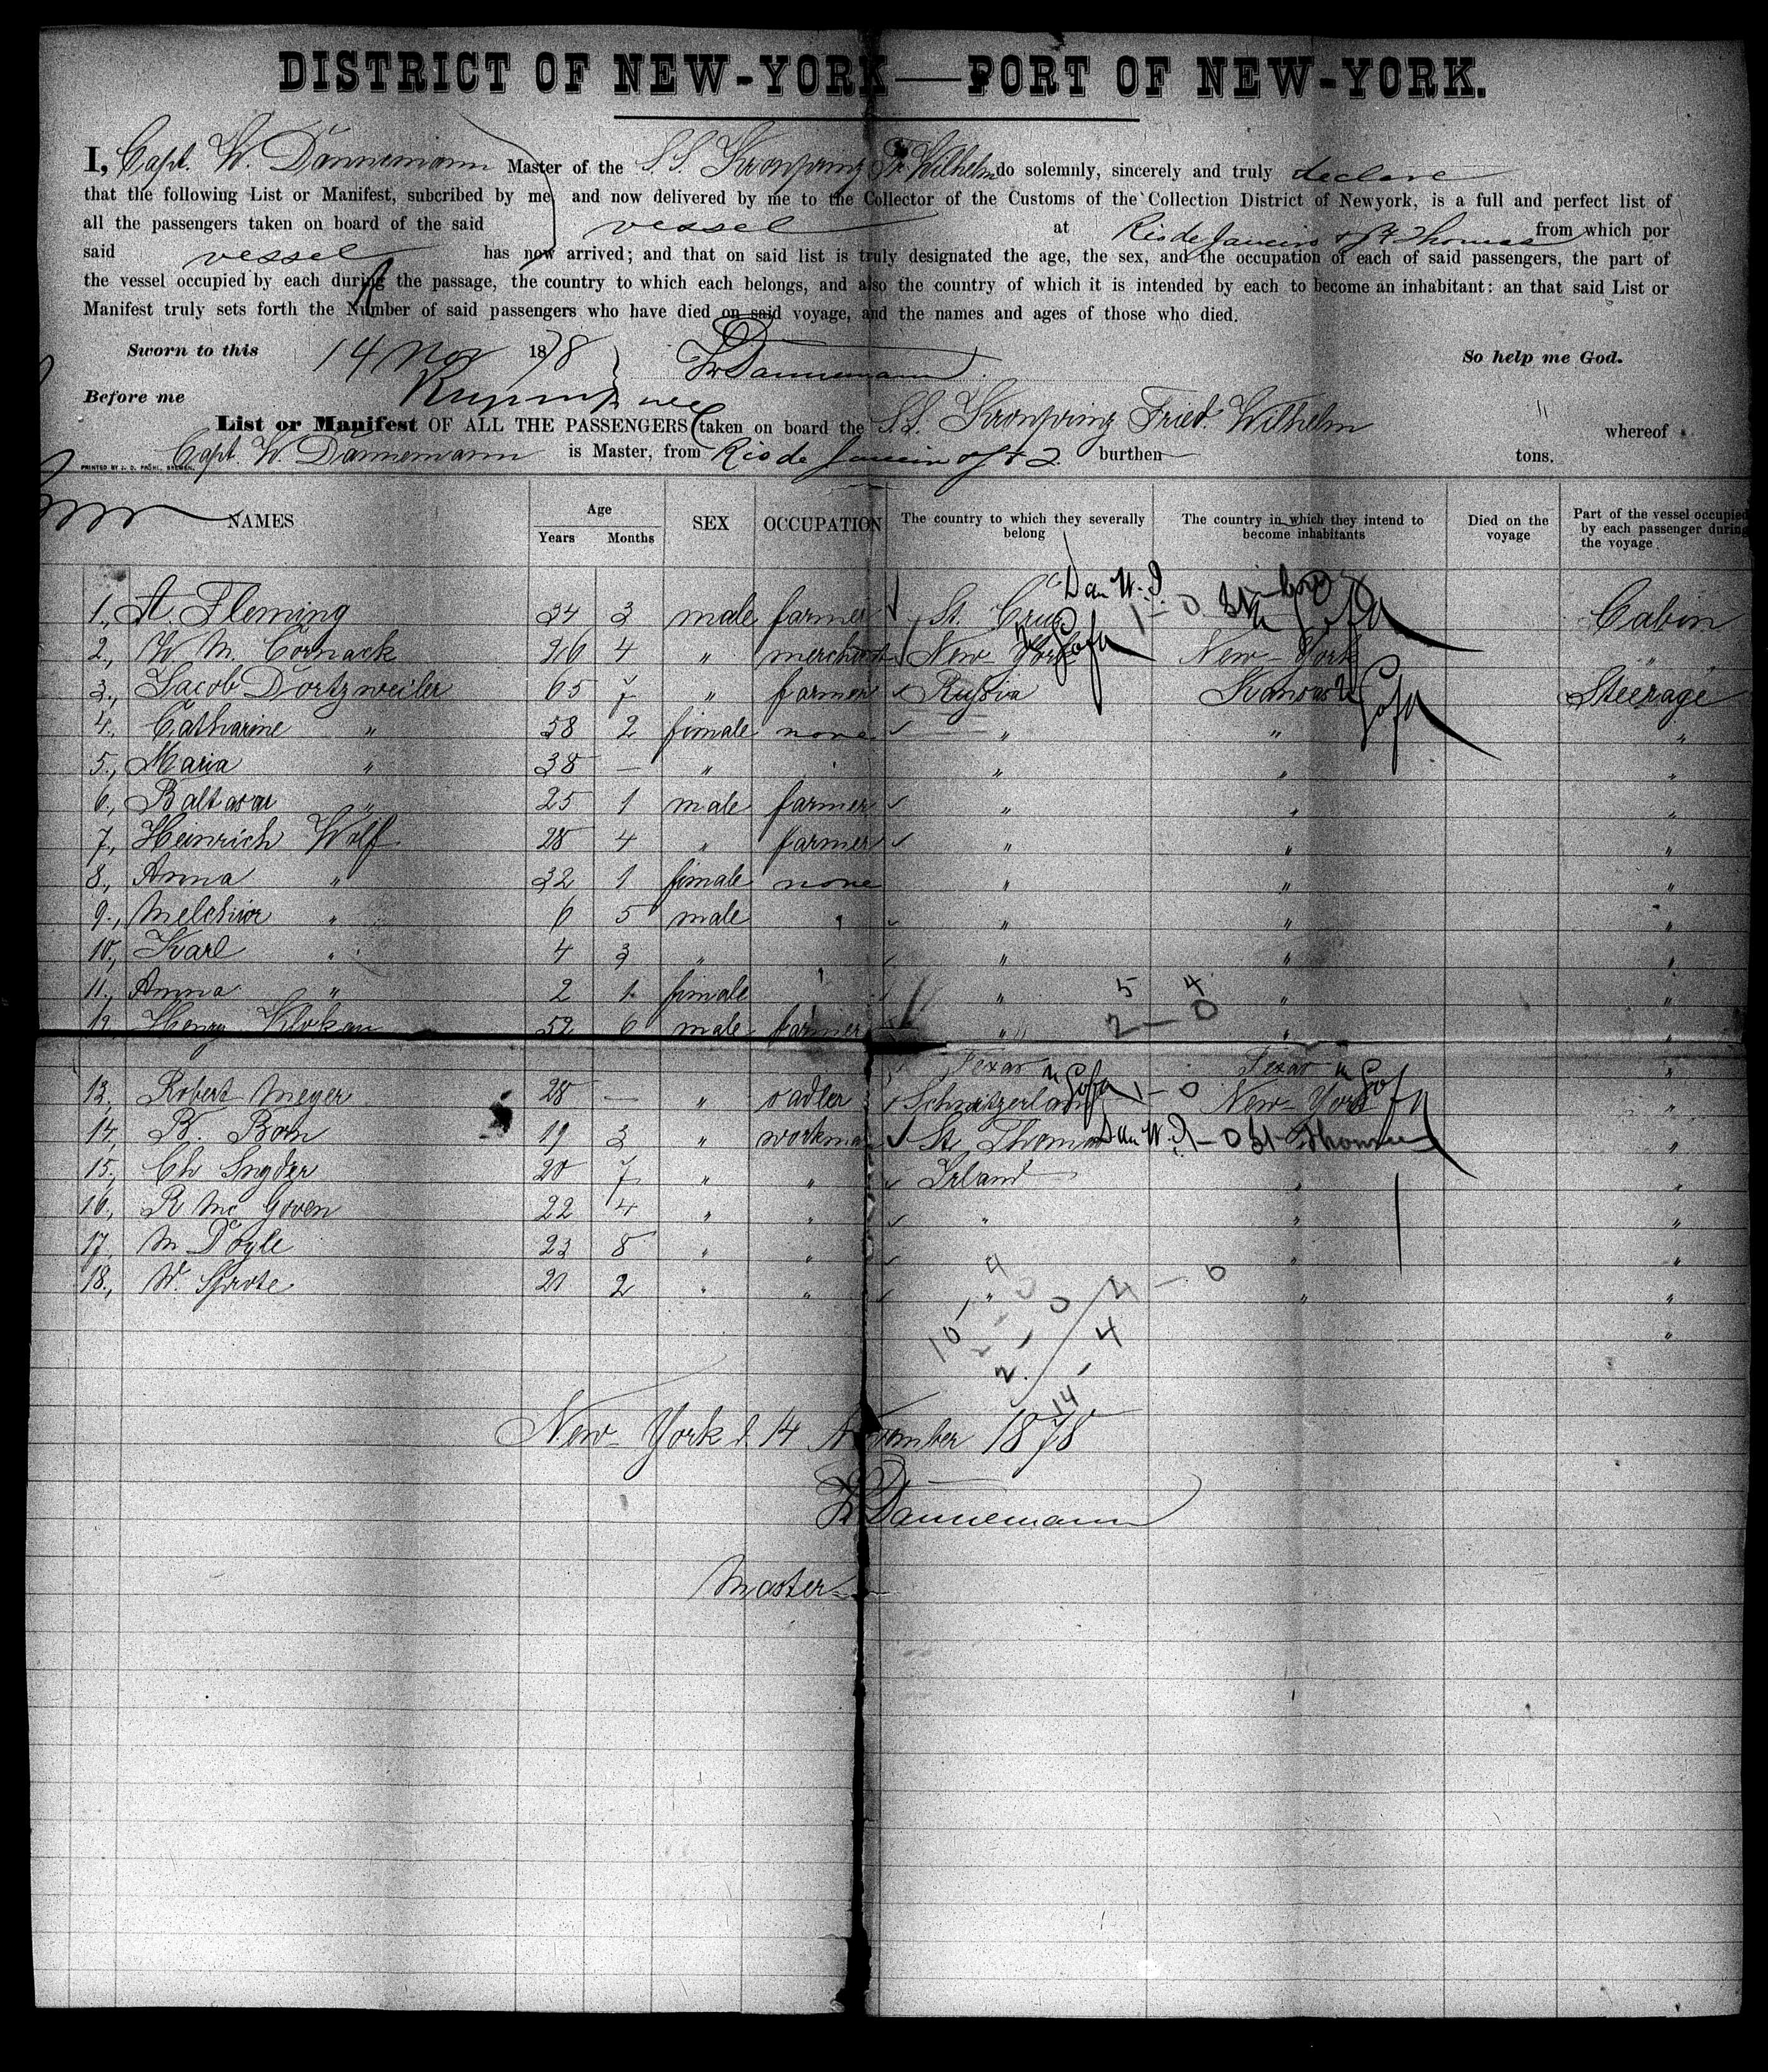 DISTRICT OF NEW-YORK — PORT OF NEW-YORK.
I, Capt. W. Dannemann Master of the S.S. Kronprinz Fr. Wilhelm do solemnly, sincerely and truly declare
that the following List or Manifest, subcribed by me and now delivered by me to the Collector of the Customs of the Collection District of Newyork, is a full and perfect list of
all the passengers taken on board of the said vessel at Rio de Janeiro & St Thomas from which por
said vessel has now arrived; and that on said list is truly designated the age, the sex, and the occupation of each of said passengers, the part of
the vessel occupied by each during the passage, the country to which each belongs, and also the country of which it is intended by each to become an inhabitant: an that said List or
Manifest truly sets forth the Number of said passengers who have died on said voyage, and the names and ages of those who died.
Sworn to this 14 Nov 1878 W Dannemann So help me God.
Before me
List or Manifest OF ALL THE PASSENGERS taken on board the S.S. Kronprinz Fried. Wilhelm whereof
Capt. W. Dannemann is Master, from Rio de Janeiro burthen tons.
PRINTED BY J. D. PRÖHL, BREMEN.
NAMES Age Years Months SEX OCCUPATION The country to which they severally belong The country in which they intend to become inhabitants Died on the voyage Part of the vessel occupied by each passenger during the voyage
Dan W. I.
1., A. Fleming 34 3 male farmer St. Crux 1 - 0 Cabin
2., W. M. Cormack 26 4 " merchant New-York New-York "
3., Jacob Dortzweiler 65 7 " farmer Russia Kansas Steerage
4., Catharine " 58 2 fimale none " " "
5., Maria " 38 — " " " "
6., Baltasar " 25 1 male farmer " " "
7., Heinrich Wolf 28 4 " farmer " " "
8., Anna " 32 1 fimale none " " "
9., Melchior " 6 5 male " " " "
10., Karl " 4 3 " " " "
11., Anna " 2 1 fimale " " "
5 4
2 — 0
12., Henry 52 6 male farmer " " "
Texas Texas "
13., Robert Meyer 28 — " sadler Schnitzerland 1 - 0 New-York "
14., B. Born 19 3 " workman St. Thomas Dan W. I. - 0 St Thomas "
15., Ch Snyder 20 7 " " Irland " "
16., R Mc Goven 22 4 " " " " "
17., M Doyle 23 8 " " " "
18., W. Sprote 21 2 " " " " "
4 — 0
10 4
2
14
New-York d. 14 November 1878
W Dannemann
Master